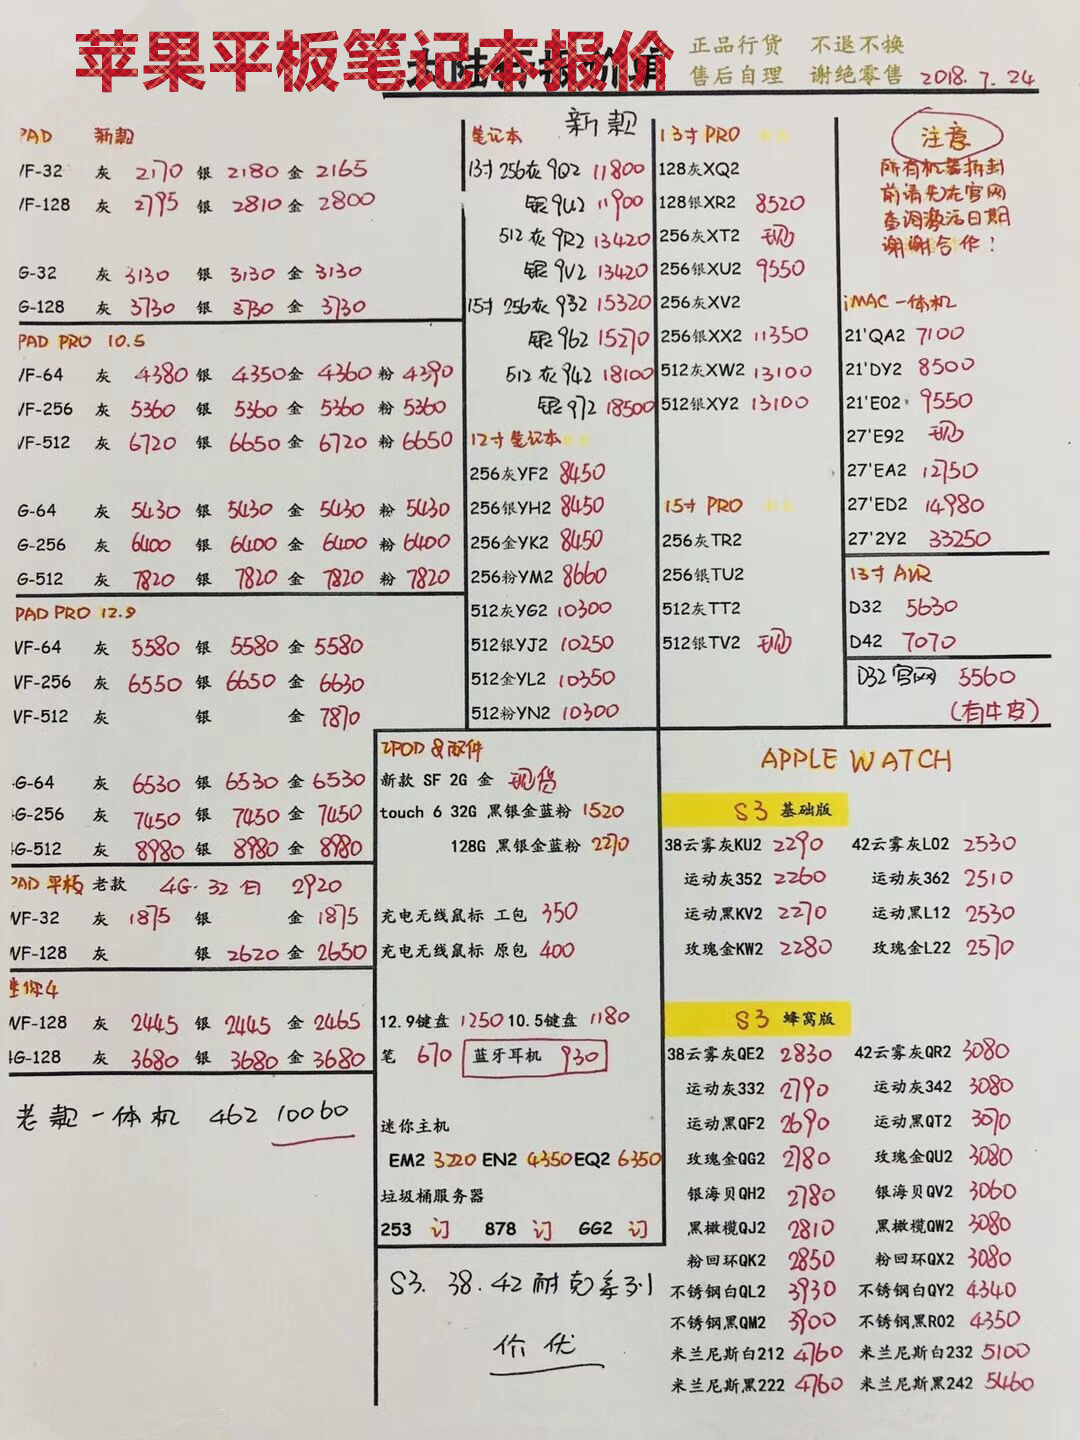 苹果平板笔记本报价
正品行货 不退不换
售后自理 谢绝零售 2018.7.24
PAD 新款
VF-32 灰 2170 银 2180 金 2165
VF-128 灰 2795 银 2810 金 2800
G-32 灰 3130 银 3130 金 3130
G-128 灰 3730 银 3730 金 3730
PAD PRO 10.5
VF-64 灰 4380 银 4350 金 4360 粉 4390
VF-256 灰 5360 银 5360 金 5360 粉 5360
VF-512 灰 6720 银 6650 金 6720 粉 6650
G-64 灰 5430 银 5430 金 5430 粉 5430
G-256 灰 6400 银 6400 金 6400 粉 6400
G-512 灰 7820 银 7820 金 7820 粉 7820
PAD PRO 12.9
VF-64 灰 5580 银 5580 金 5580
VF-256 灰 6550 银 6650 金 6630
VF-512 灰 银 金 7870
4G-64 灰 6530 银 6530 金 6530
4G-256 灰 7450 银 7450 金 7450
4G-512 灰 8980 银 8980 金 8980
PAD 平板 老款 4G.32白 2920
WF-32 灰 1875 银 金 1875
WF-128 灰 银 2620 金 2650
迷你4
WF-128 灰 2445 银 2445 金 2465
4G-128 灰 3680 银 3680 金 3680
老款一体机 462 10060
笔记本 新款
13寸 256灰 9Q2 11800
银 9U2 11900
512灰 9R2 13420
银 9V2 13420
15寸 256灰 932 15320
银 962 15270
512灰 942 18100
银 972 18500
12寸笔记本
256灰YF2 8450
256银YH2 8450
256金YK2 8450
256粉YM2 8660
512灰YG2 10300
512银YJ2 10250
512金YL2 10350
512粉YN2 10300
13寸 PRO
128灰XQ2
128银XR2 8520
256灰XT2 现
256银XU2 9550
256灰XV2
256银XX2 11350
512灰XW2 13100
512银XY2 13100
15寸 PRO
256灰TR2
256银TU2
512灰TT2
512银TV2 现
注意
所有机器拆封
前请先在官网
查询激活日期
谢谢合作!
iMAC 一体机
21'QA2 7100
21'DY2 8500
21'E02 9550
27'E92 现
27'EA2 12750
27'ED2 14980
27'2Y2 33250
13寸 AIR
D32 5630
D42 7070
D32 官网 5560
(有牛皮)
IPOD &配件
新款 SF 2G 金 现货
touch 6 32G 黑银金蓝粉 1520
128G 黑银金蓝粉 2270
充电无线鼠标 工包 350
充电无线鼠标 原包 400
12.9键盘 1250 10.5键盘 1180
笔 670 蓝牙耳机 930
迷你主机
EM2 3220 EN2 4350 EQ2 6350
垃圾桶服务器
253 订 878 订 GG2 订
S3. 38.42耐克系列
价优
APPLE WATCH
S3 基础版
38云雾灰KU2 2290 42云雾灰L02 2530
运动灰352 2260 运动灰362 2510
运动黑KV2 2270 运动黑L12 2530
玫瑰金KW2 2280 玫瑰金L22 2570
S3 蜂窝版
38云雾灰QE2 2830 42云雾灰QR2 3080
运动灰332 2790 运动灰342 3080
运动黑QF2 2690 运动黑QT2 3070
玫瑰金QG2 2780 玫瑰金QU2 3080
银海贝QH2 2780 银海贝QV2 3060
黑橄榄QJ2 2810 黑橄榄QW2 3080
粉回环QK2 2850 粉回环QX2 3080
不锈钢白QL2 3930 不锈钢白QY2 4340
不锈钢黑QM2 3900 不锈钢黑R02 4350
米兰尼斯白212 4760 米兰尼斯白232 5100
米兰尼斯黑222 4760 米兰尼斯黑242 5460